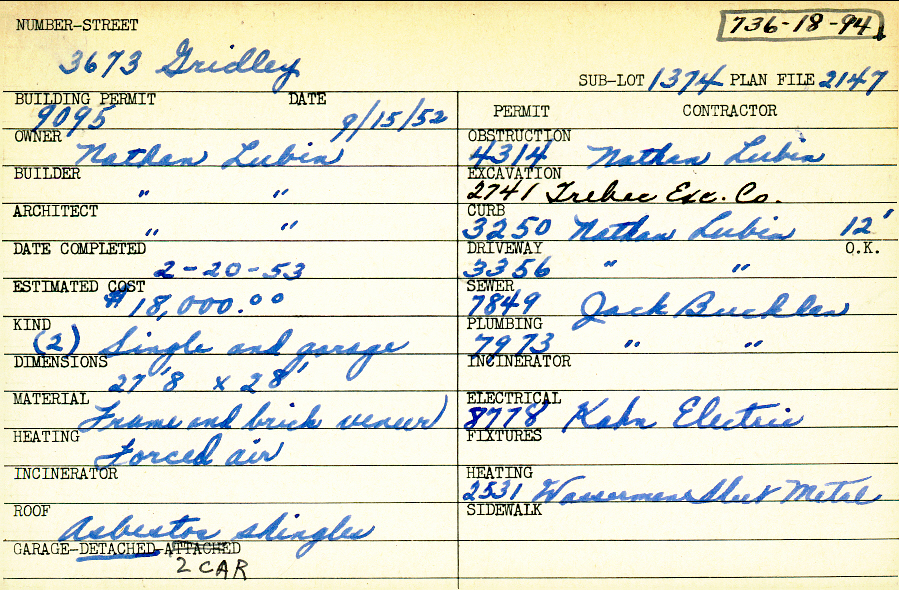 NUMBER-STREET
736-18-94
3673 Gridley
SUB-LOT 1374 PLAN FILE 2147
BUILDING PERMIT DATE
9095 9/15/52
OWNER
Nathan Lubin
BUILDER
" "
ARCHITECT
" "
DATE COMPLETED
2-20-53
ESTIMATED COST
$18,000.00
KIND
(2) Single and garage
DIMENSIONS
27'8 x 28'
MATERIAL
Frame and brick veneer
HEATING
Forced air
INCINERATOR
ROOF
Asbestos shingles
GARAGE-DETACHED-ATTACHED
2 CAR
PERMIT CONTRACTOR
OBSTRUCTION
4314 Nathan Lubin
EXCAVATION
2741 Trebec Exc. Co.
CURB
3250 Nathan Lubin 12'
DRIVEWAY O.K.
3356 " "
SEWER
7849 Jack Bucklan
PLUMBING
7973 " "
INCINERATOR
ELECTRICAL
8778 Kahn Electric
FIXTURES
HEATING
2531 Wassermens Sheet Metal
SIDEWALK